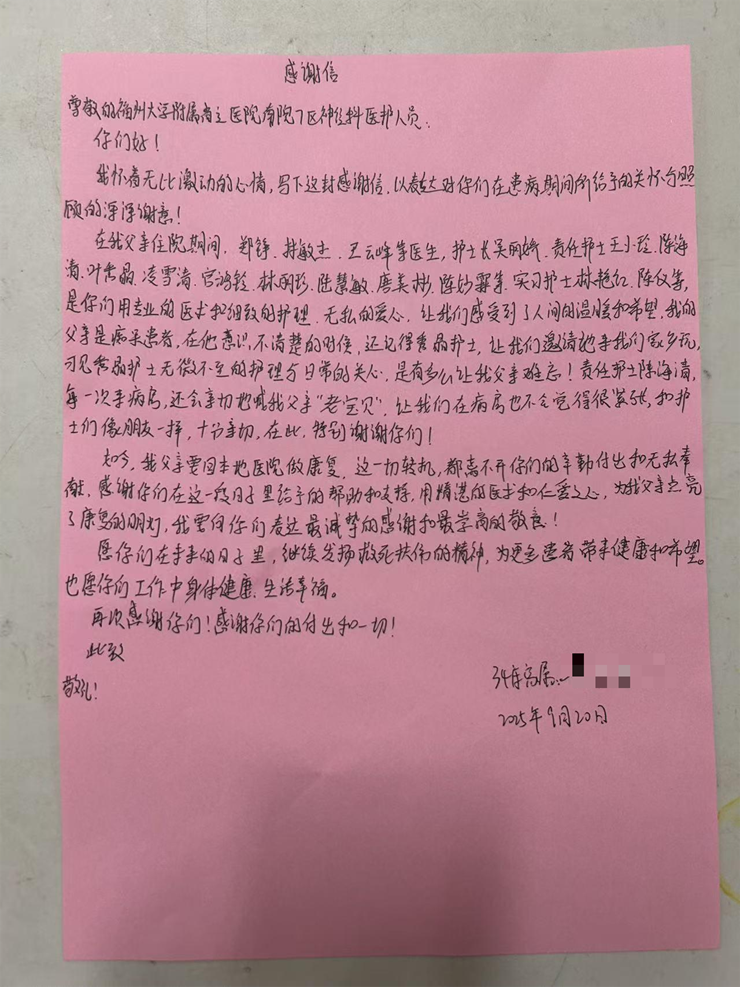 感谢信
尊敬的福州大学附属省立医院南院7区神经科医护人员：
你们好！
我怀着无比激动的心情，写下这封感谢信，以表达对你们在患病期间所给予的关怀与照
顾的深深谢意！
在我父亲住院期间，郑铮、林敏杰、王云峰等医生，护士长吴丽娥、责任护士王小玲、陈海
清、叶秀晶、凌雪清、官鸿铃、林丽珍、陆慧敏、唐美彬、陈妙霖等，实习护士林艳红、陈仪等，
是你们用专业的医术和细致的护理、无私的爱心，让我们感受到了人间的温暖和希望，我的
父亲是痴呆患者，在他意识不清楚的时候，还记得秀晶护士，让我们邀请她来我们家乡玩，
可见秀晶护士无微不至的护理与日常的关心，是有多么让我父亲难忘！责任护士陈海清，
每一次来病房，还会亲切地喊我父亲“老宝贝”，让我们在病房也不会觉得很紧张，和护
士们像朋友一样，十分亲切，在此，特别谢谢你们！
如今，我父亲要回本地医院做康复，这一切转机，都离不开你们的辛勤付出和无私奉
献，感谢你们在这一段日子里给予的帮助和支持，用精湛的医术和仁爱之心，为我父亲点亮
了康复的明灯，我要向你们表达最诚挚的感谢和最崇高的敬意！
愿你们在未来的日子里，继续发扬救死扶伤的精神，为更多患者带来健康和希望。
也愿你们工作中身体健康、生活幸福。
再次感谢你们！感谢你们的付出和一切！
此致
敬礼！
34床家属：
2025年9月20日